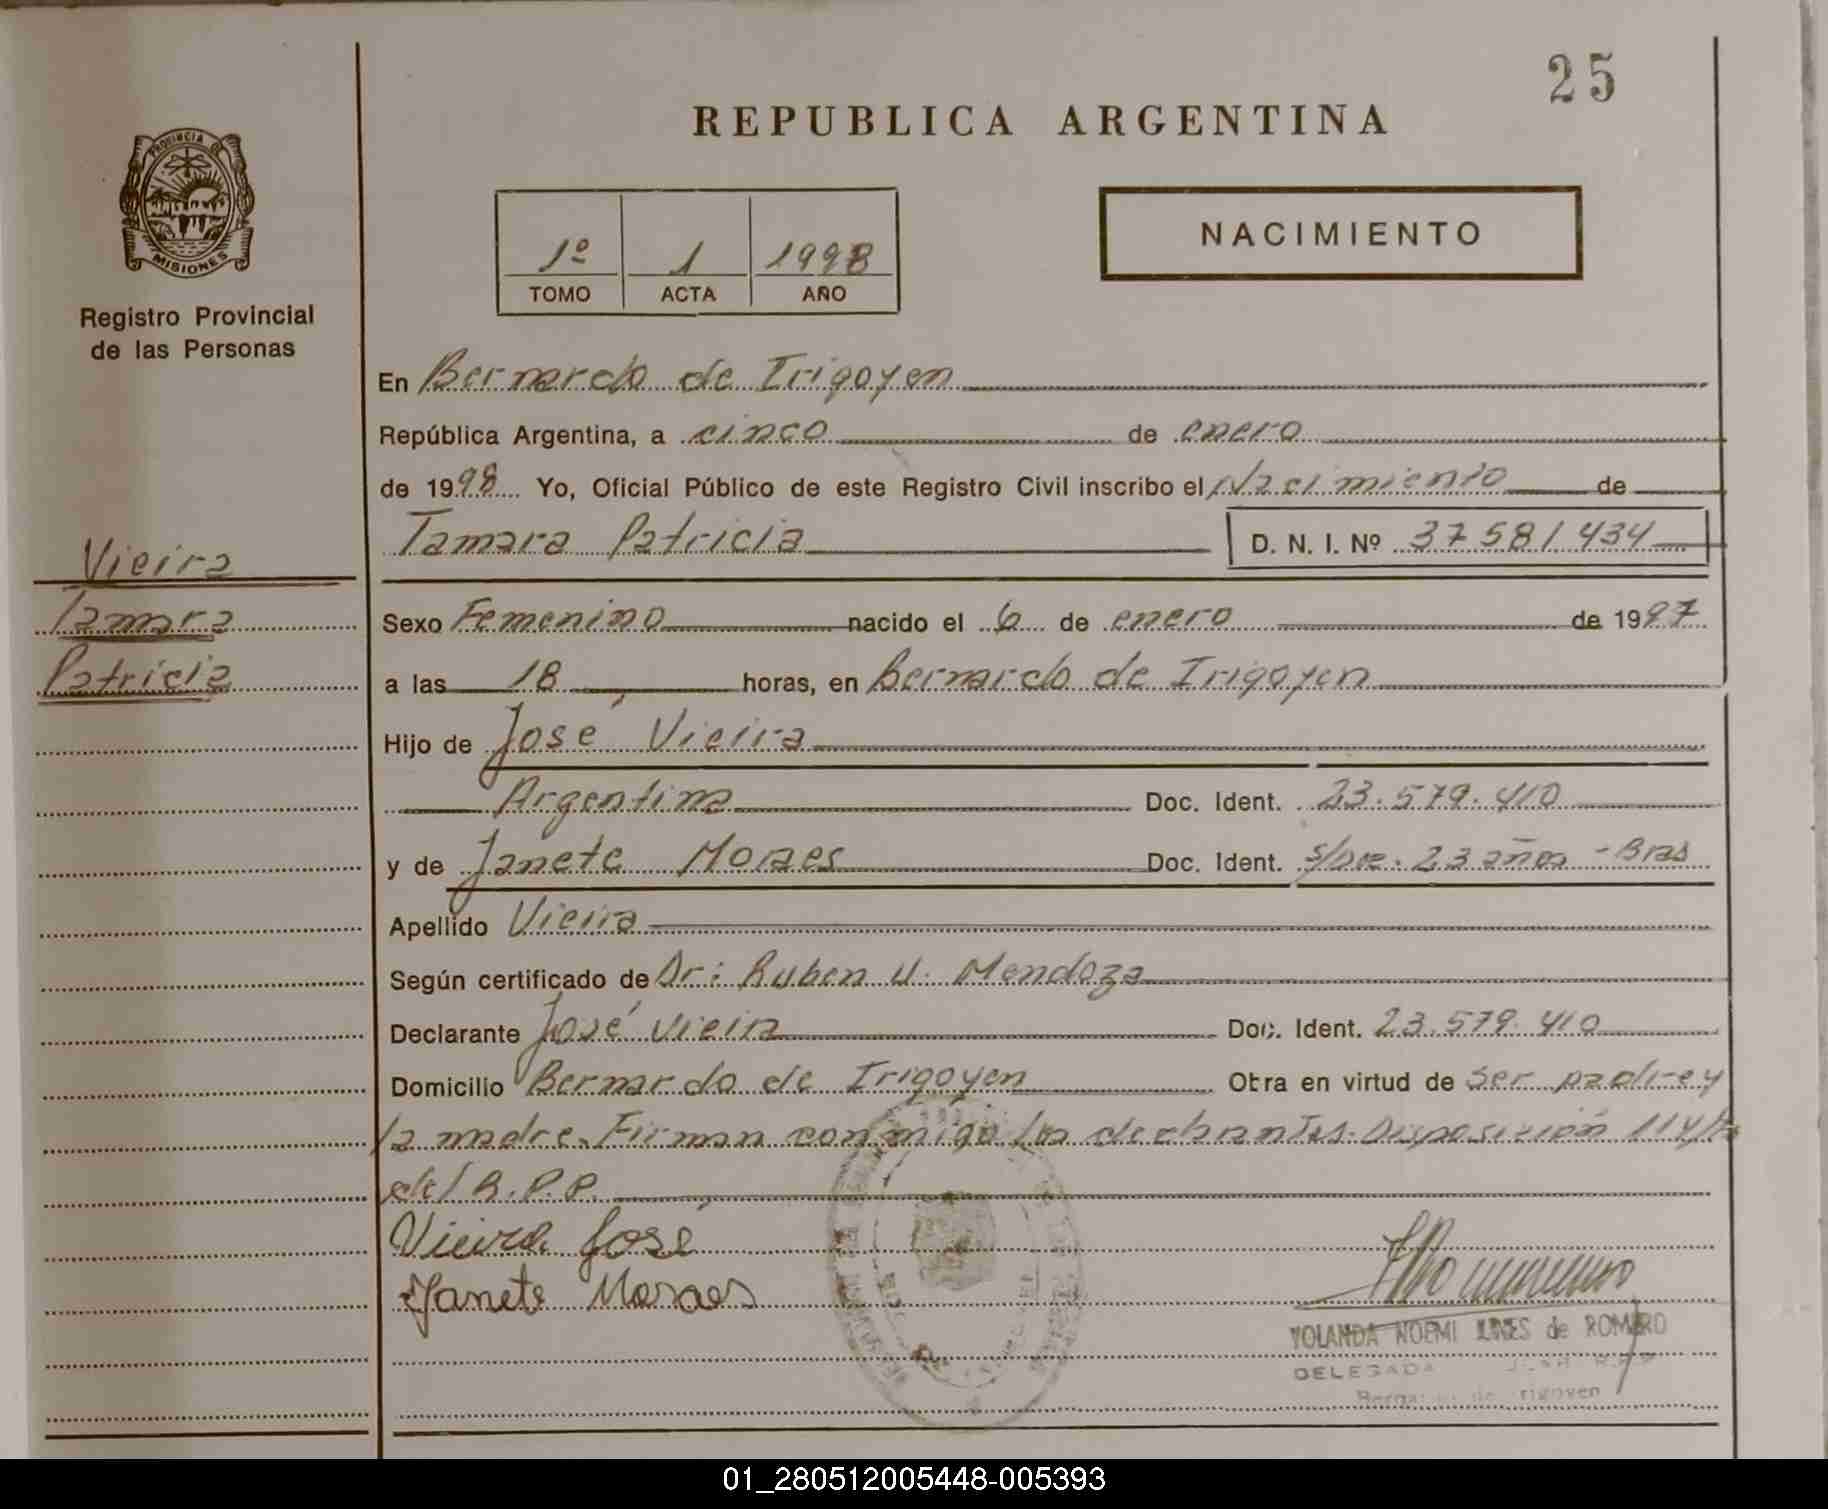 25
REPUBLICA ARGENTINA
PROVINCIA DE
MISIONES
Registro Provincial
de las Personas
1º 1 1998
TOMO ACTA AÑO
NACIMIENTO
En Bernardo de Irigoyen
República Argentina, a cinco de enero
de 1998 Yo, Oficial Público de este Registro Civil inscribo el Nacimiento de
Tamara Patricia D. N. I. Nº 37581434
Vieira
Tamara
Patricia
Sexo Femenino nacido el 6 de enero de 1997
a las 18 horas, en Bernardo de Irigoyen
Hijo de José Vieira
Argentina Doc. Ident. 23.579.410
y de Janete Moraes Doc. Ident. s/Doc. 23 años - Bras
Apellido Vieira
Según certificado de Dr: Ruben U. Mendoza
Declarante José Vieira Doc. Ident. 23.579.410
Domicilio Bernardo de Irigoyen Otra en virtud de ser padre y
la madre. Firman conmigo los declarantes. Disposición
del R.P.P.
Vieira José
Janete Moraes
YOLANDA NOEMI de ROMERO
DELEGADA R.P.P
Bernardo de Irigoyen
01_280512005448-005393